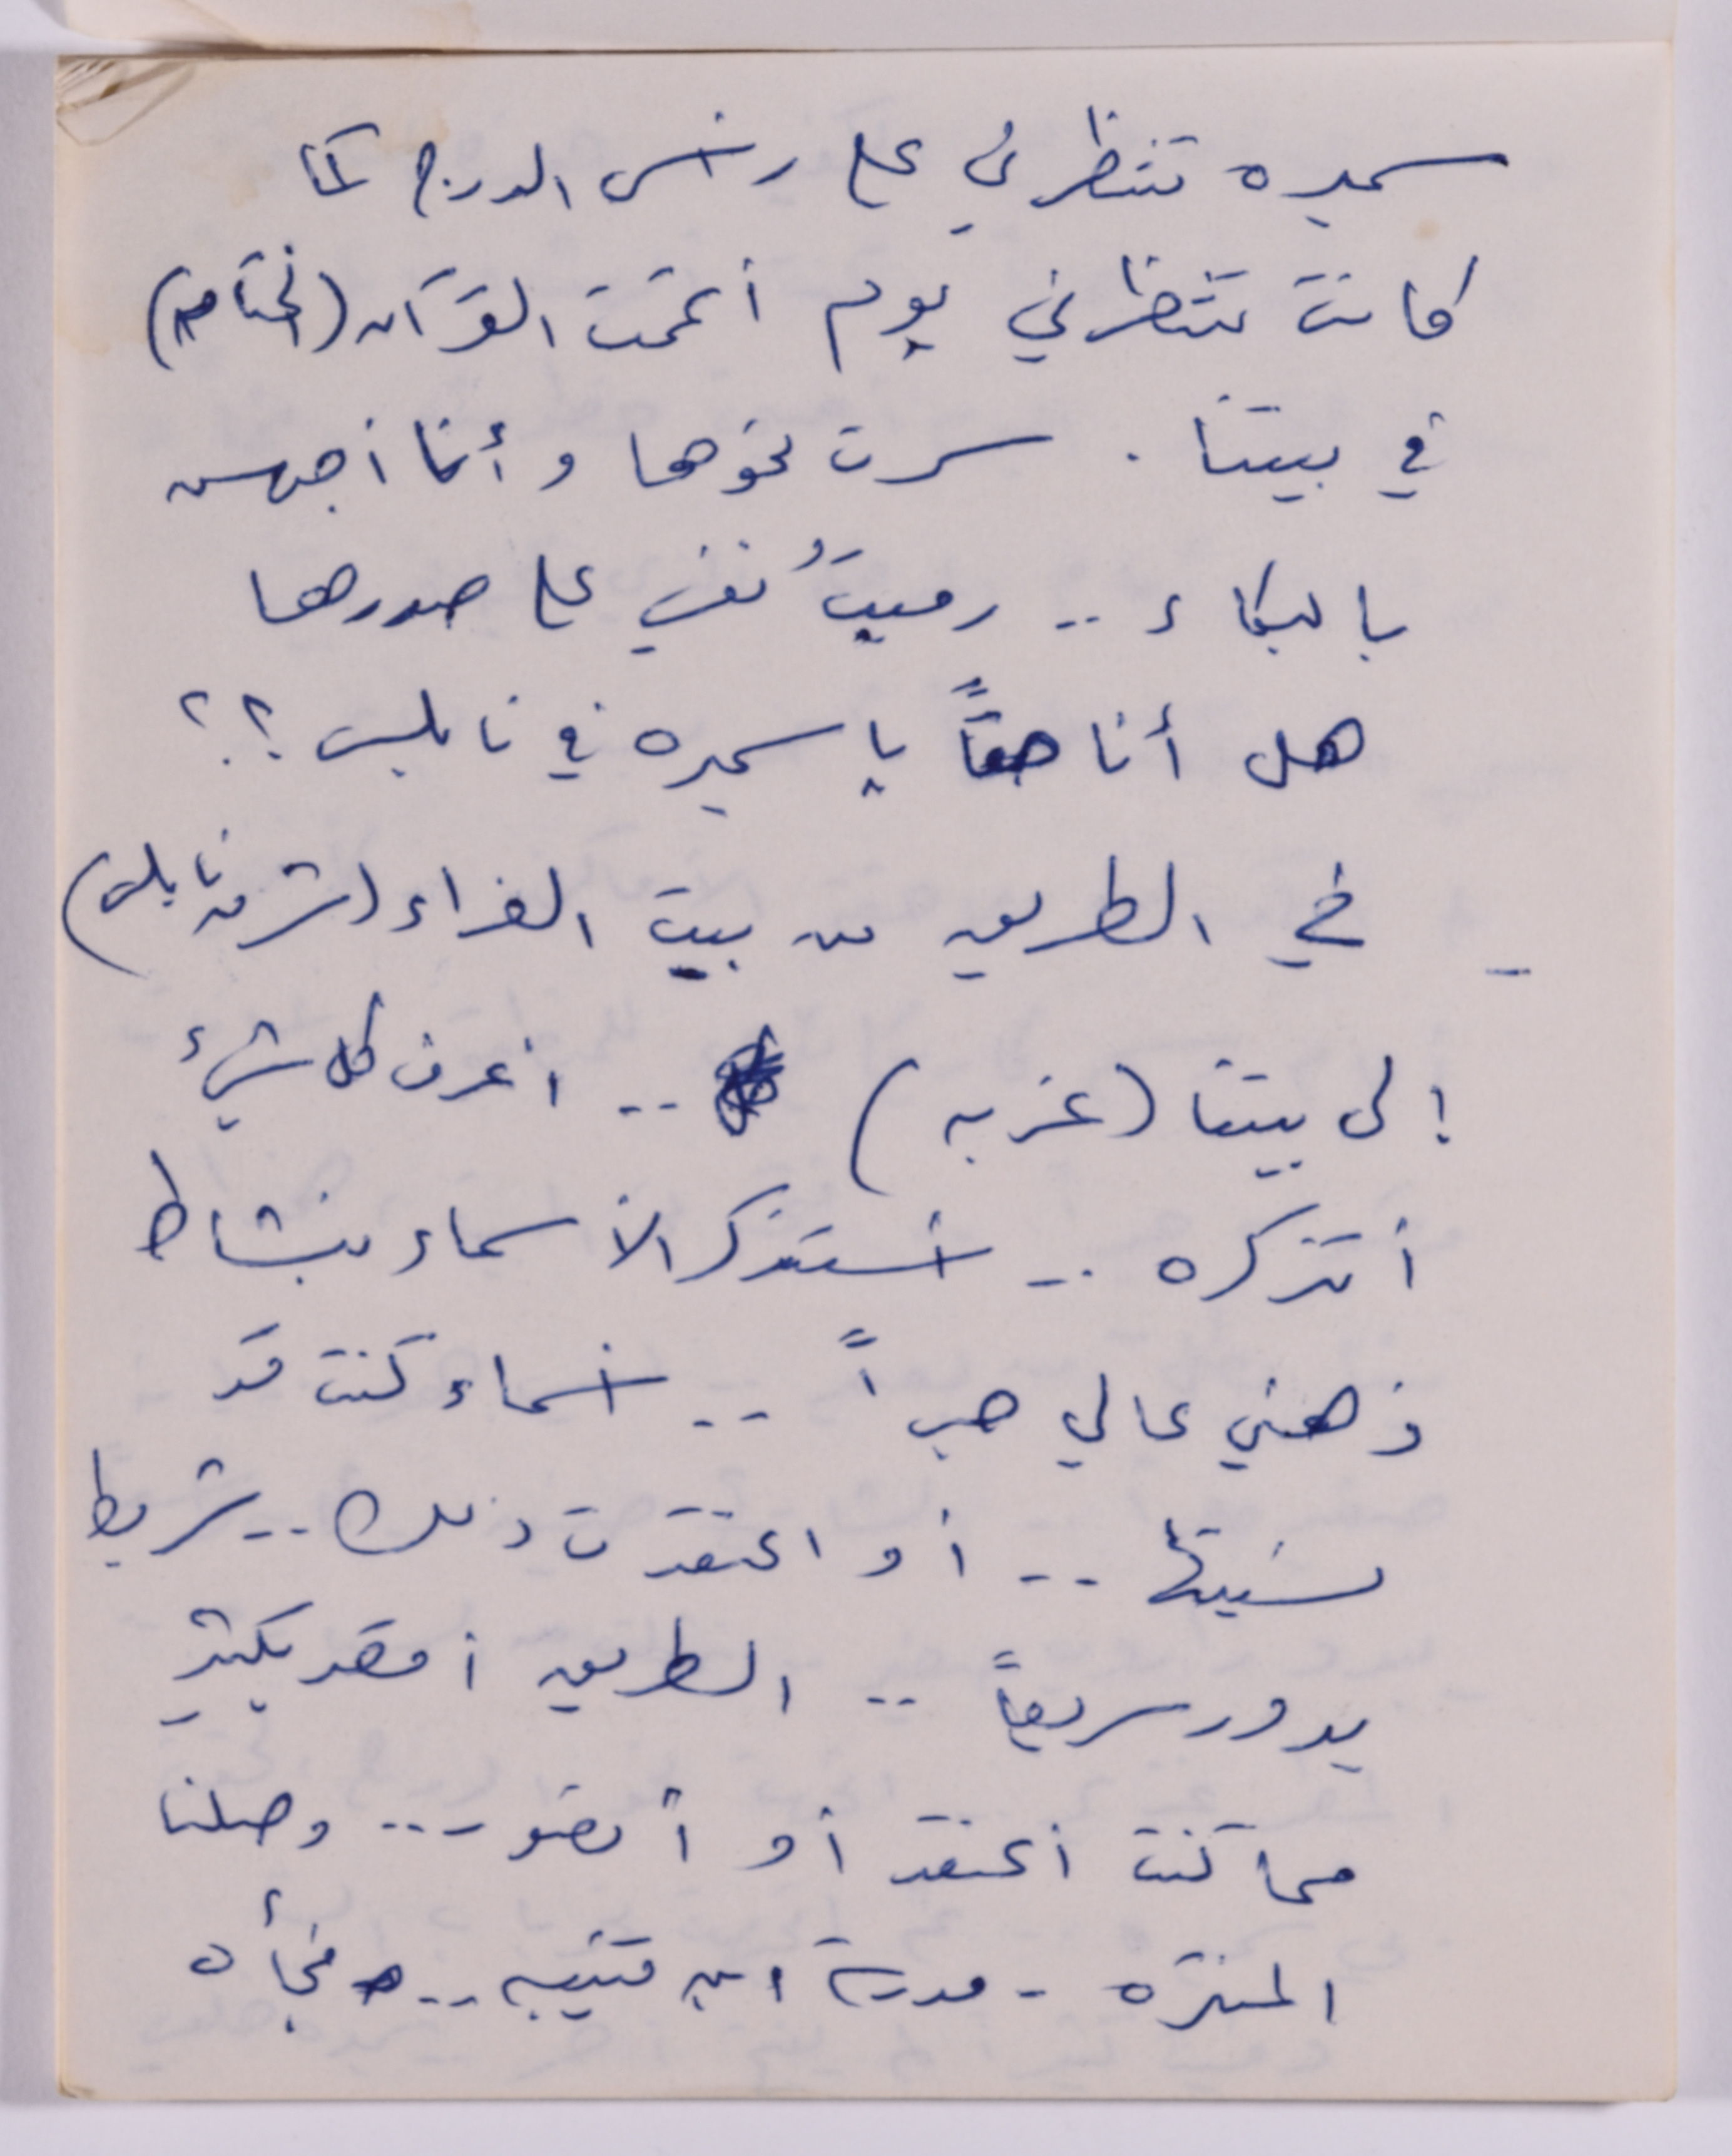 سميره تنتظرني على رأس الدرج كما
كانت تنتظرني يوم أتممت القرآن (الختامه)
في بيتنا . سرت نحوها وأنا أجهس
بالبكاء .. رميتُ نفسي على صدرها
هل أنا حقاً يا سميره في نابلس ؟؟
- في الطريق من بيت الفراء (شرق نابلس)
إلى بيتنا (غربه) .. أعرف كل شيء
أتذكره .. أستذكر الأسماء بنشاط
ذهني عالي جداً .. أسماء كنت قد
نسيتها .. أو اعتقدت ذلك .. شريط
يدور سريعاً .. الطريق أقصر بكثير
مما كنت أعتقد أو أتصور .. وصلنا
المنتزه - مدرسة ابن قتيبه .. فجأه